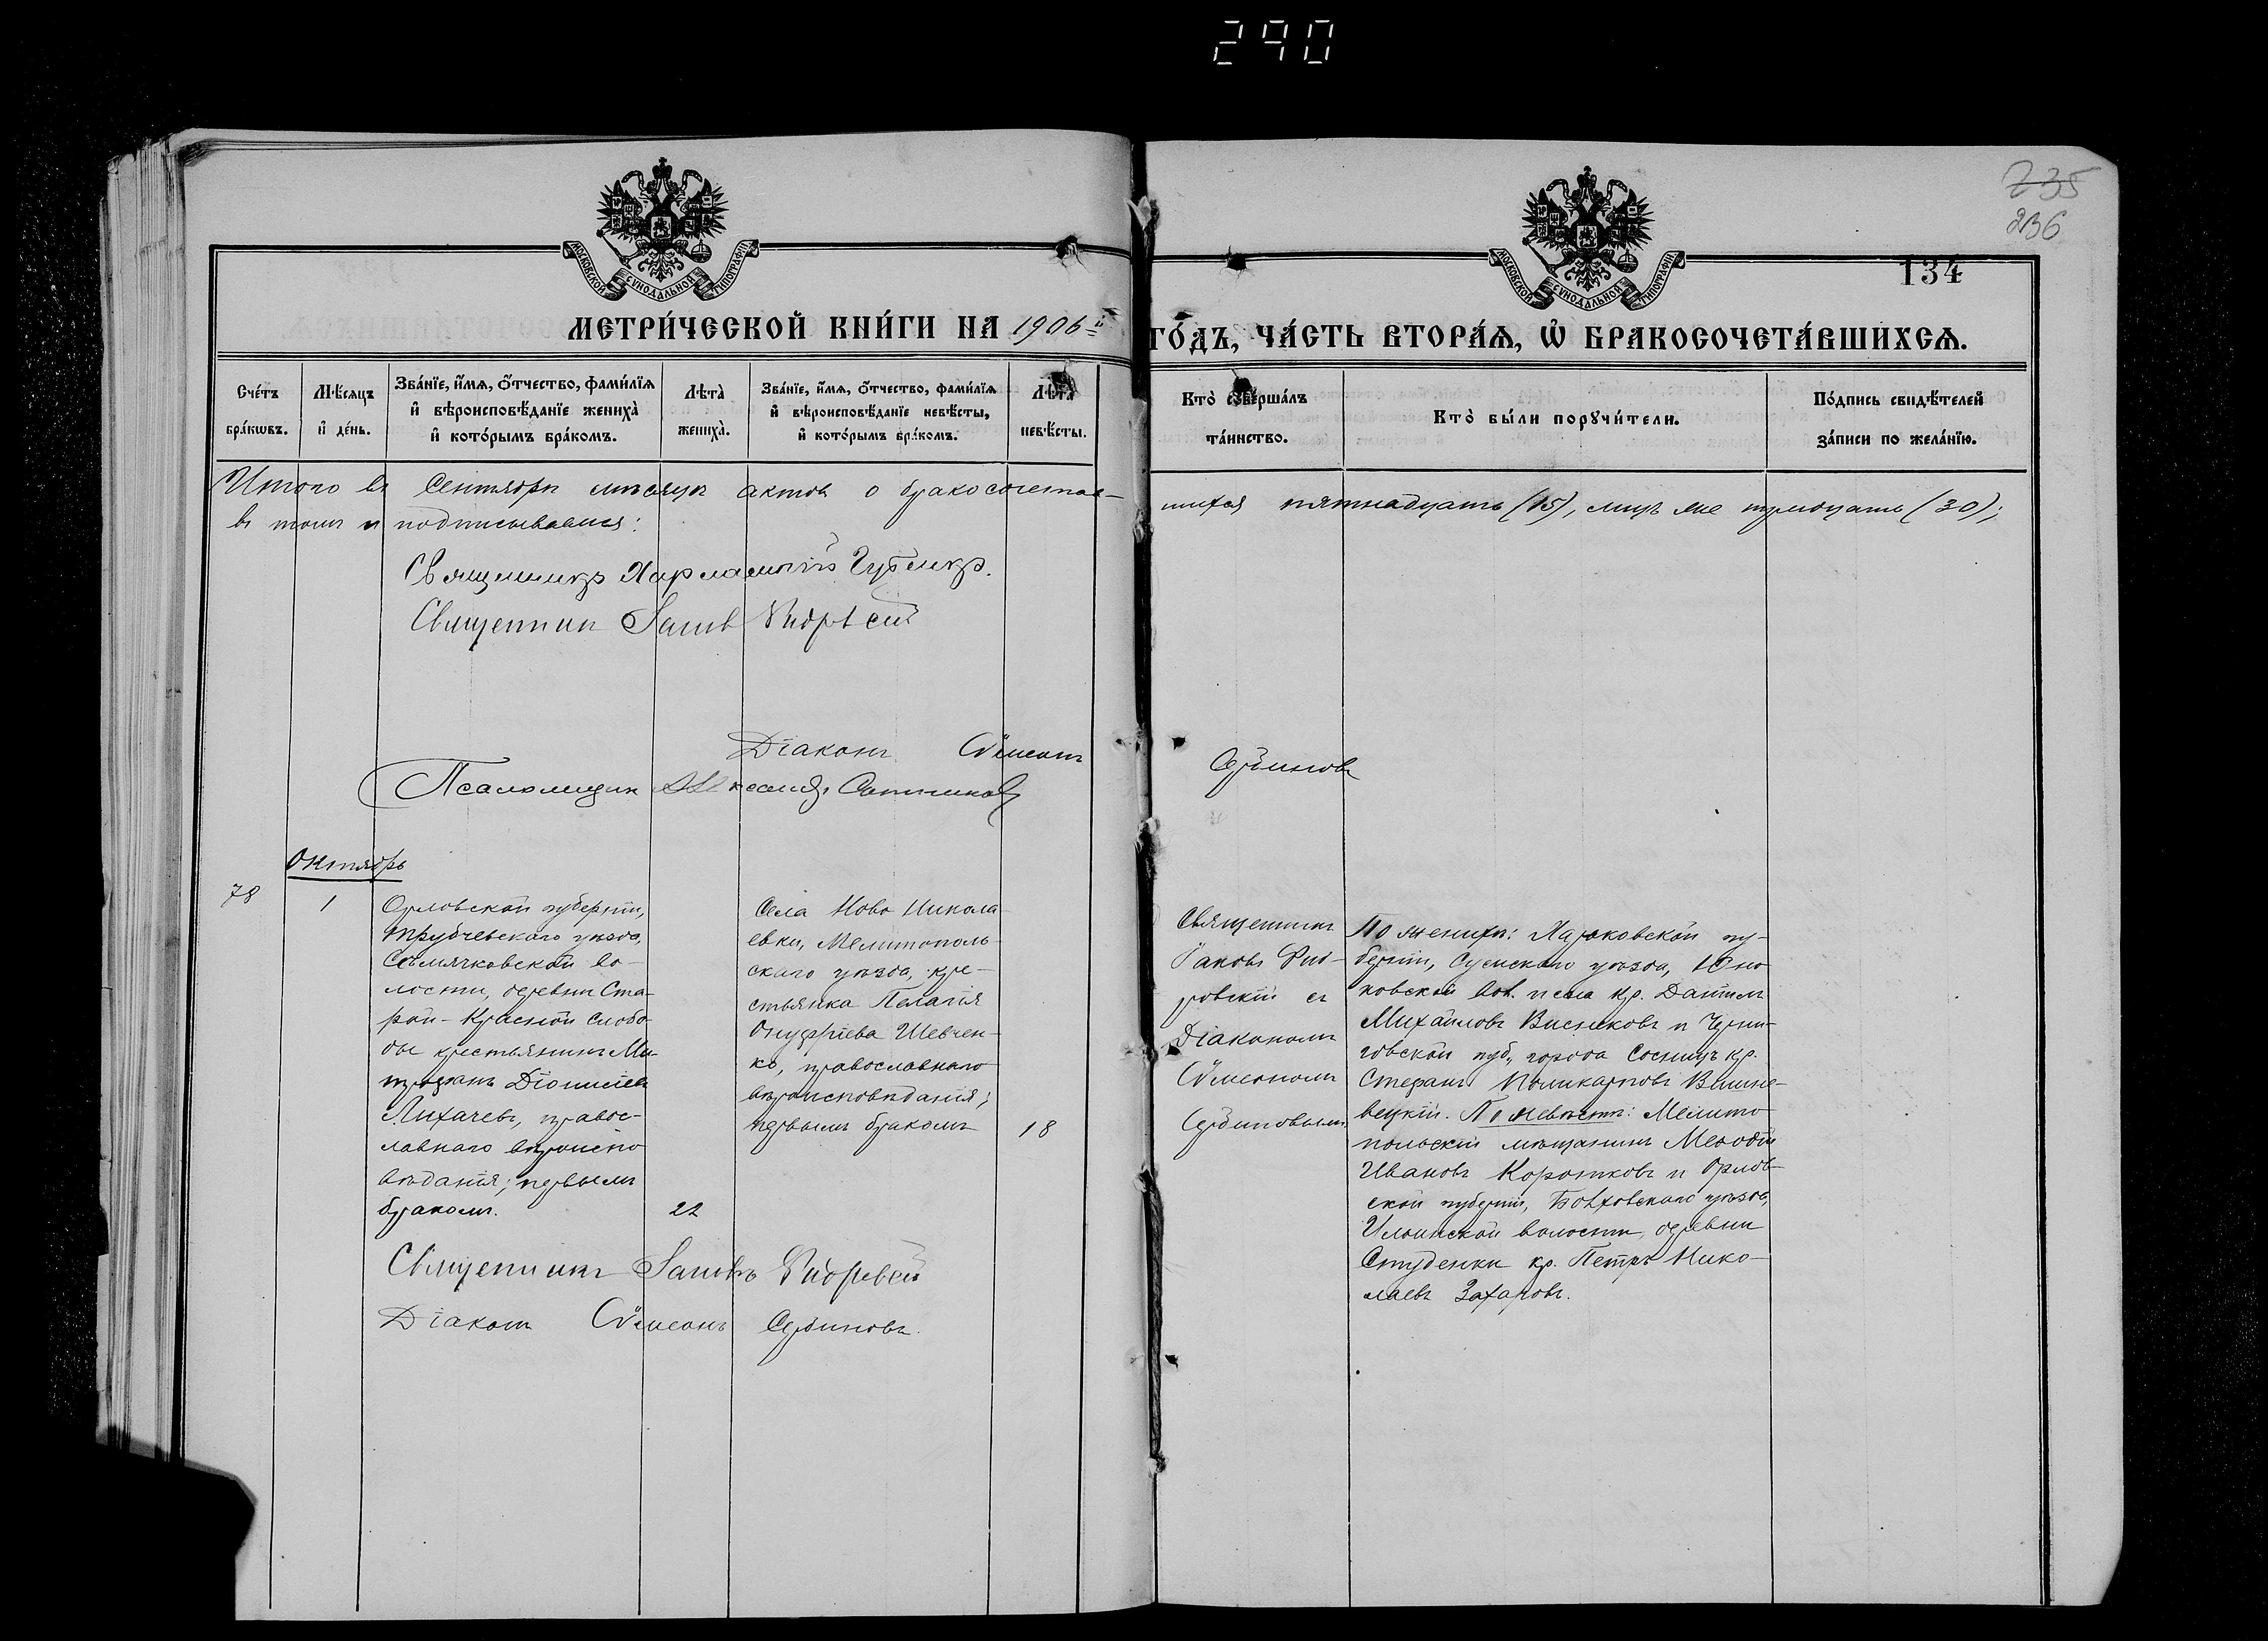 290
235
236
134
МОСКОВСКОЙ СУНОДАЛЬНОЙ ТИПОГРАФІИ
МОСКОВСКОЙ СУНОДАЛЬНОЙ ТИПОГРАФІИ
МЕТРИ́ЧЕСКОЙ КНИ́ГИ НА 1906й ГО́ДЪ, ЧА́СТЬ ВТОРА́Ѧ, Ѿ БРАКОСОЧЕТА́ВШИХСѦ.
Сче́тъ бра́кѡвъ.
Мѣ́сяцъ и҆ де́нь.
Зва́нїе, и҆́мѧ, ѻ҆́тчество, фами́лїѧ и҆ вѣроисповѣ́данїе жениха̀ и҆ кото́рымъ бра́комъ.
Лѣта̀ жениха̀.
Зва́нїе, и҆́мѧ, ѻ҆́тчество, фами́лїѧ и҆ вѣроисповѣ́данїе невѣ́сты, и҆ кото́рымъ бра́комъ.
Лѣта̀ невѣ́сты.
Кто̀ соверша́лъ та́инство.
Кто̀ бы́ли порꙋчи́тели.
По́дпись свидѣ́телей за́писи по жела́нїю.
Итого въ Сентябрѣ мѣсяцѣ актовъ о бракосочетав-шихся пятнадцать (15), лицъ же тридцать (30);
въ томъ и подписываемся:
Священникъ Харлампій Губ
Священник Іаков
Діаконъ Сѵмеонъ Сербиновъ
Псаломщик Александр
Октябрь
78
1
Орловской губерніи,
Трубчевскаго уѣзда,
Семячковской во-
лости, деревни Ста-
рой-Красной Слобо-
ды крестьянинъ Ми-
трофанъ Діонисіевъ
Лихачевъ, правос-
лавнаго вѣроиспо
вѣданія; первымъ
бракомъ.
22
Села Ново Никола-
евки, Мелитополь-
скаго уѣзда, кре-
стьянка Пелагія
Онуфріева Шевчен-
ко, православнаго
вѣроисповѣданія;
первымъ бракомъ
18
Священникъ
Іаковъ
ровскій съ
Діакономъ
Сѵмеономъ
Сербиновымъ
По женихѣ: Харьковской гу-
берніи, Сумскаго уѣзда, Юна
ковской вол. и села кр. Даніилъ
Михайловъ и Черни-
говской губ., города Сосницъ кр.
Стефанъ Поликарповъ Вишне-
вецкій. По невѣстѣ: Мелито
польскій мѣщанинъ Меѳодій
Ивановъ Коротковъ и Орлов-
ской губерніи, Болховскаго уѣзда,
Ильинской волости, деревни
Студенки кр. Петръ Нико-
лаевъ Захаровъ.
Священникъ Іаковъ
Діаконъ Сѵмеонъ Сербиновъ.